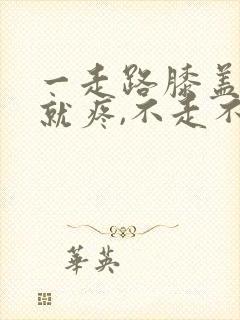 一走路膝盖
就疼,不走不
華英